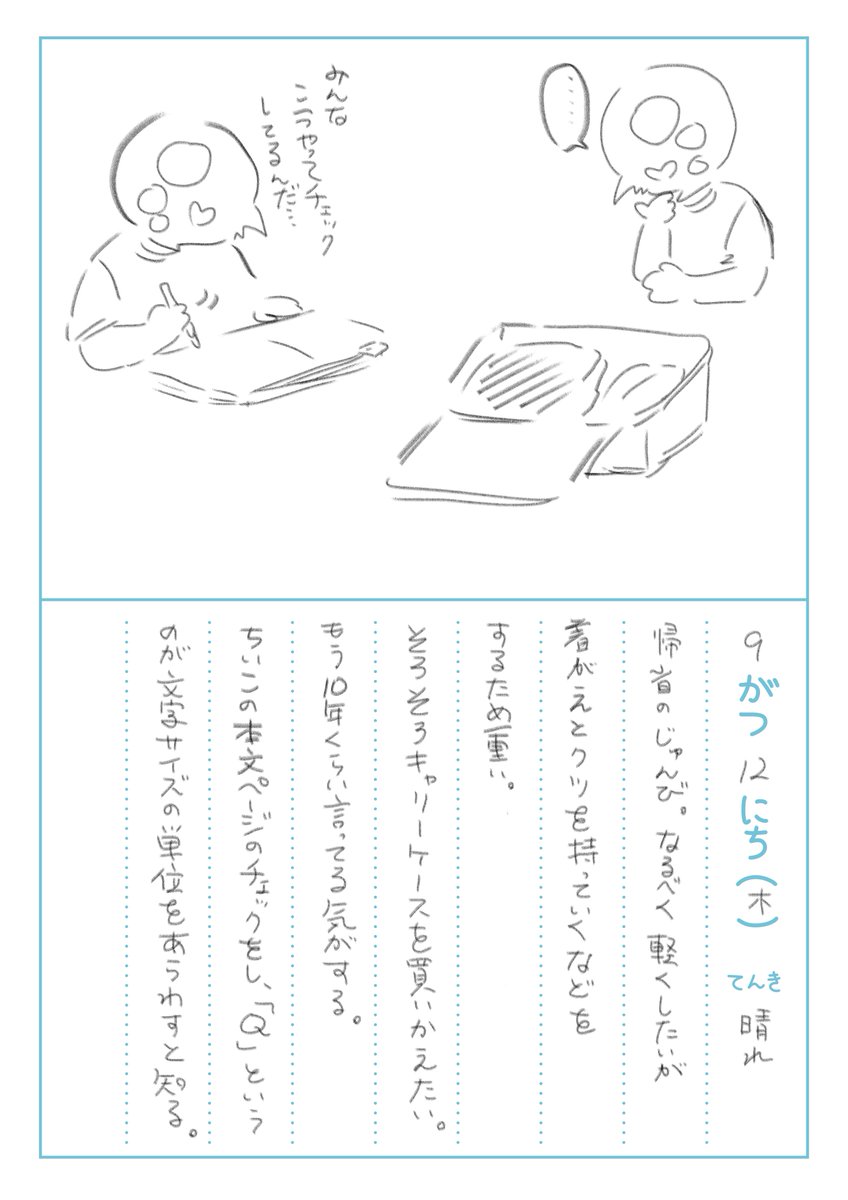 ……
みんな
こうやってチェック
してるんだ…
9がつ12にち(木) てんき 晴れ
帰省のじゅんび。なるべく軽くしたいが
着がえとクツを持っていくなどを
するため重い。
そろそろキャリーケースを買いかえたい。
もう10年くらい言ってる気がする。
ちいこの本文ページのチェックをし、「Q」という
のが文字サイズの単位をあらわすと知る。